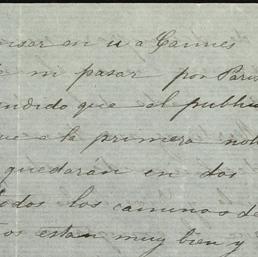 pensar en ir a Cannes
mi pasar por Paris
que el public
que a la primera not
quedarán en dos
todos los caminos de
estan muy bien y